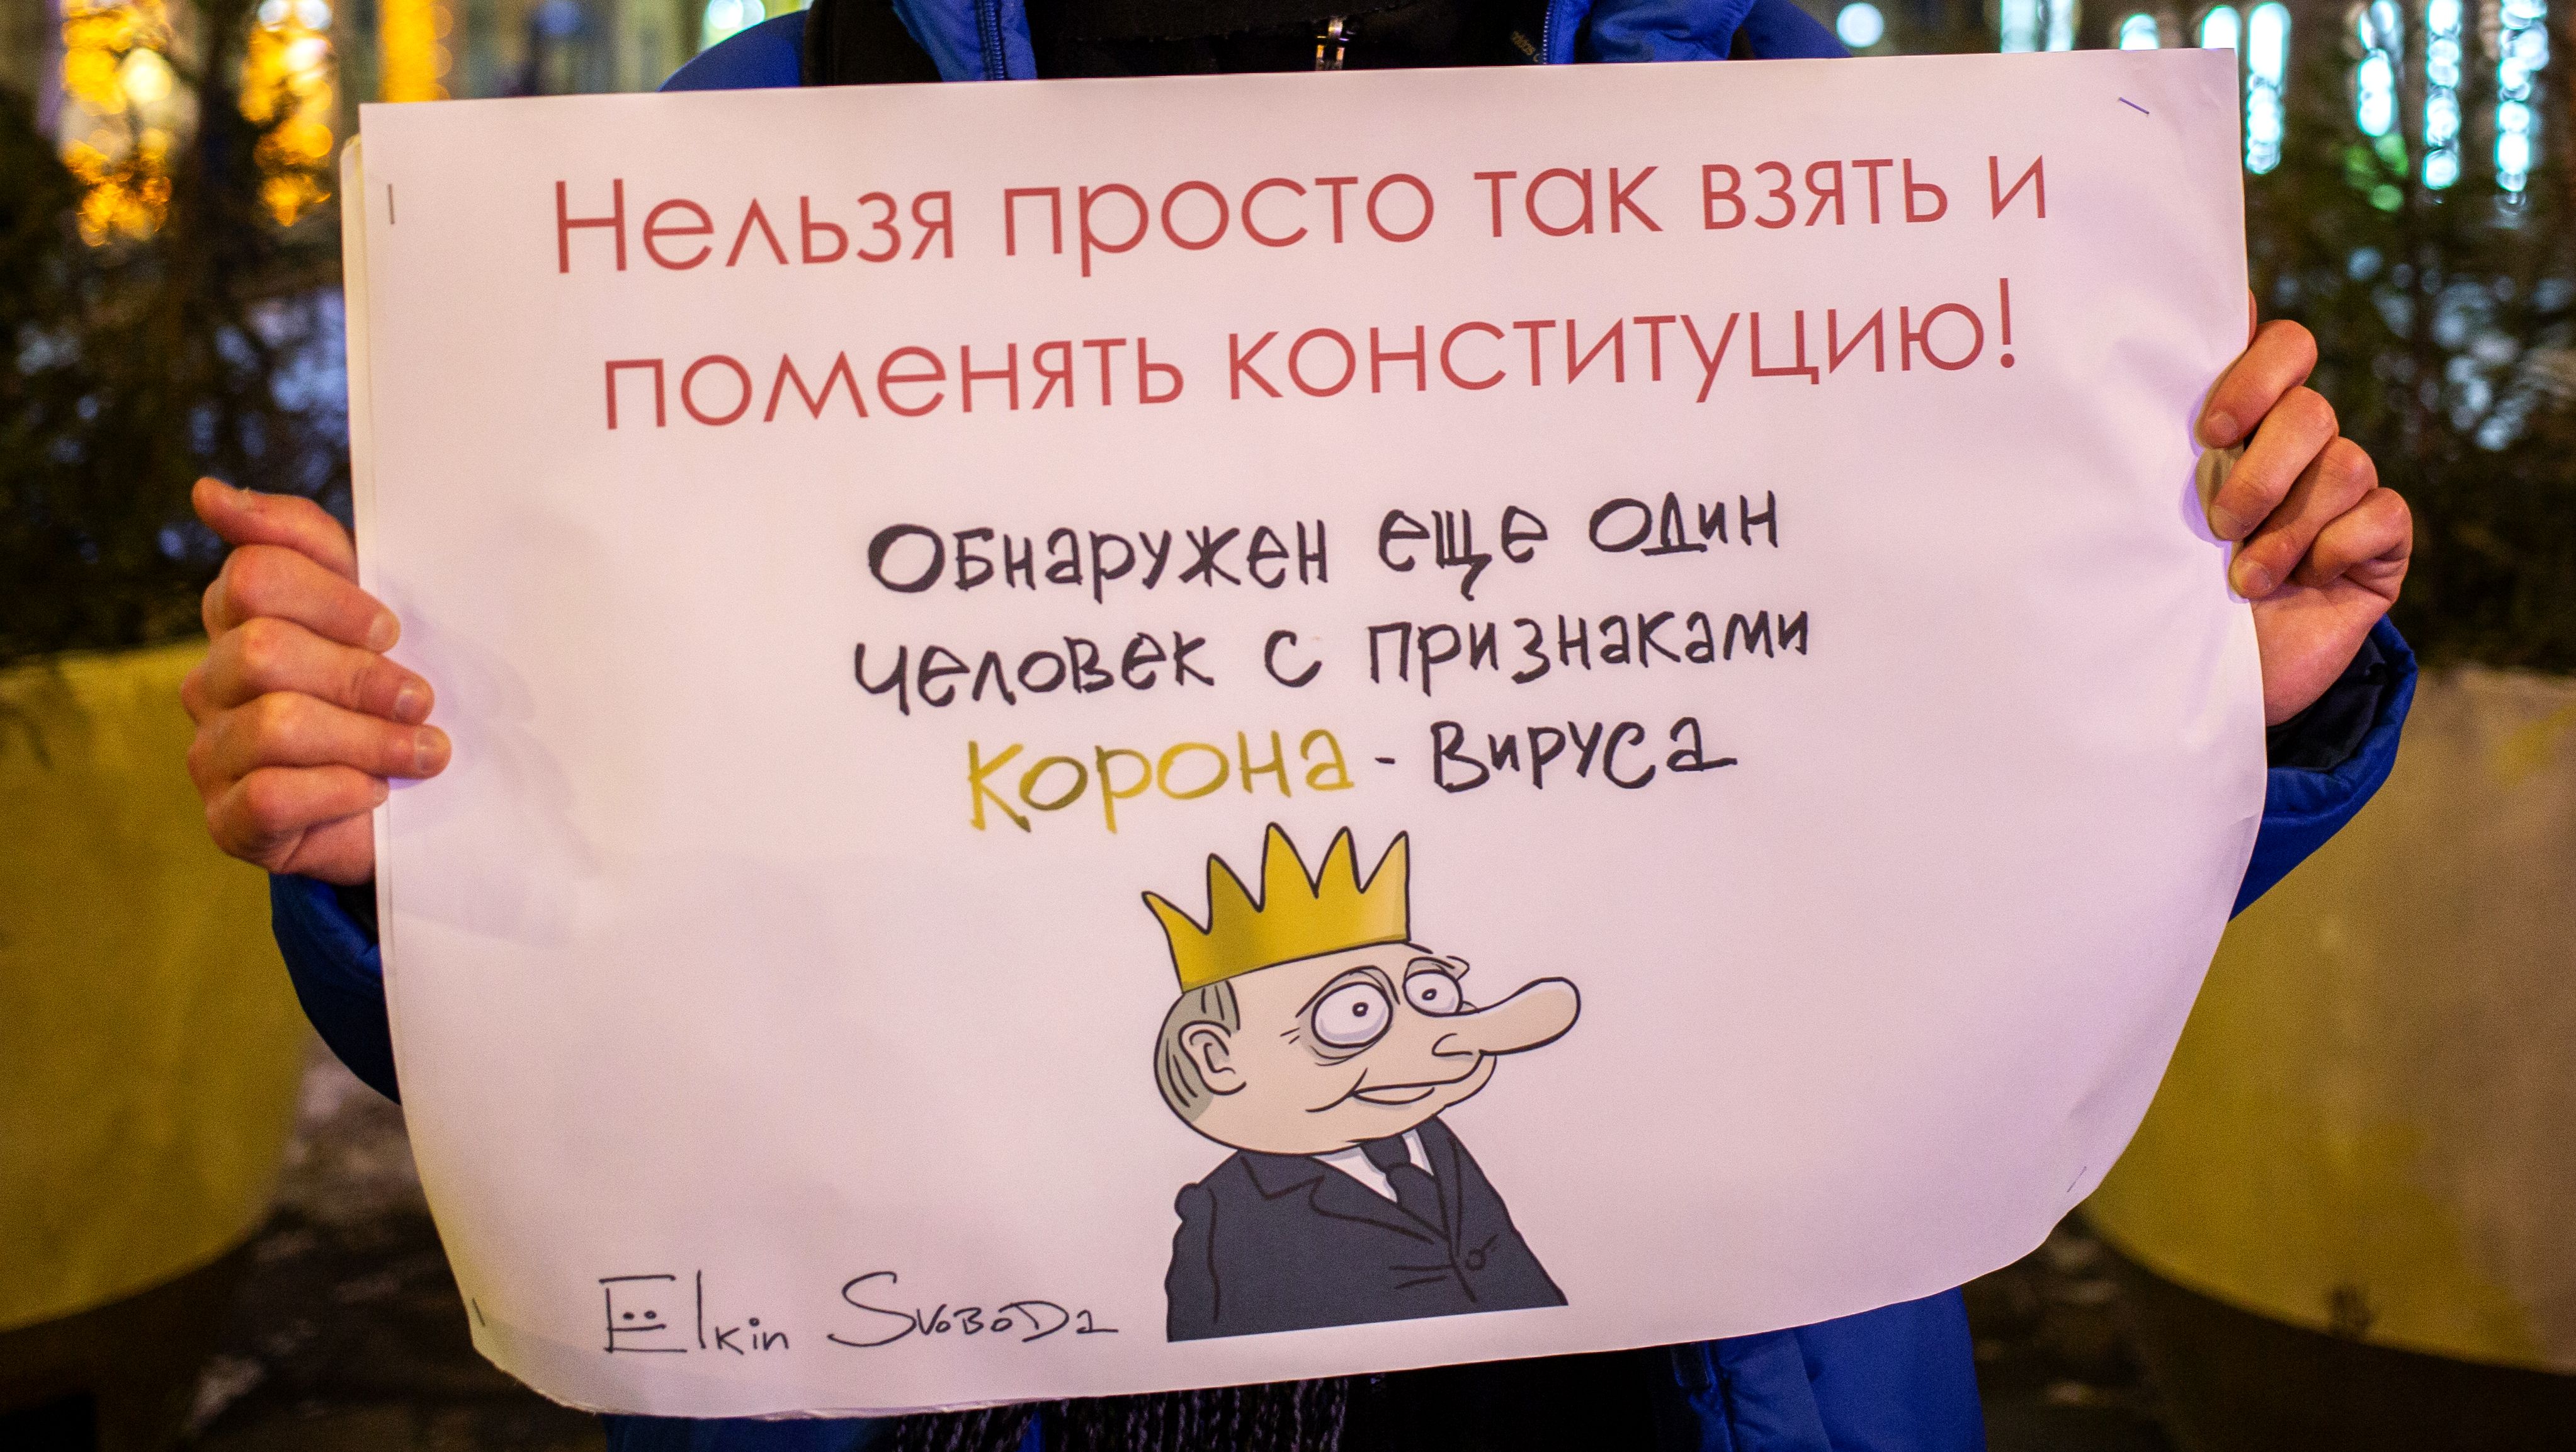 Нельзя просто так взять и
поменять конституцию!
Обнаружен еще один
человек с признаками
Корона - вируса
Elkin Svoboda